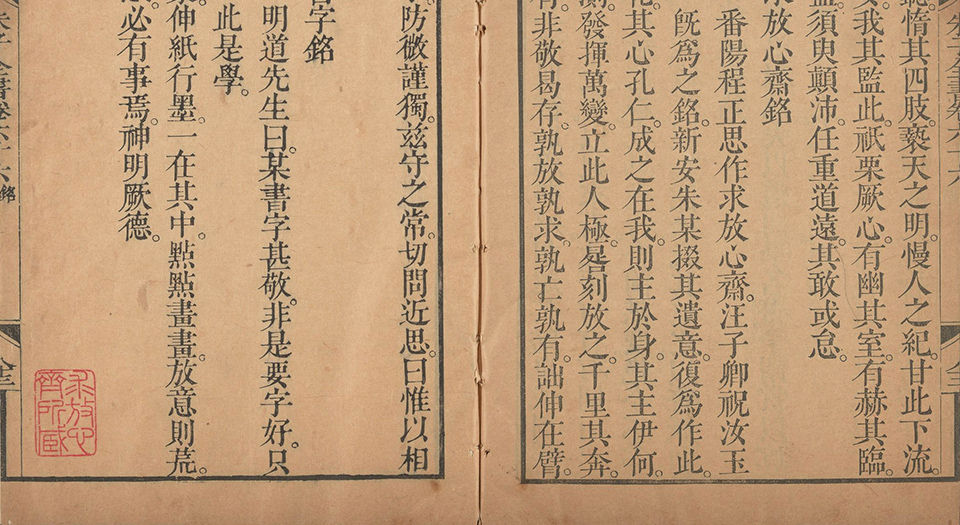 子全書卷六十六
全三
惰其四肢。褻天之明。慢人之紀。甘此下流。
我其監此。祇栗厥心。有幽其室。有赫其臨。
須臾顛沛。任重道遠。其敢或怠。
求放心齋銘
番陽程正思作求放心齋。汪子卿祝汝玉
旣爲之銘。新安朱某掇其遺意。復爲作此。
化。其心孔仁。成之在我。則主於身。其主伊何。
測。發揮萬變。立此人極。晷刻放之。千里其奔。
有。非敬曷存。孰放孰求。孰亡孰有。詘伸在臂。
防微謹獨。茲守之常。切問近思。曰惟以相
書字銘
明道先生曰。某書字甚敬。非是要字好。只
此是學。
伸紙行墨。一在其中。點點畫畫。放意則荒。
必有事焉。神明厥德。
朱子全書卷六十六 銘
全三
求放心
齋所藏